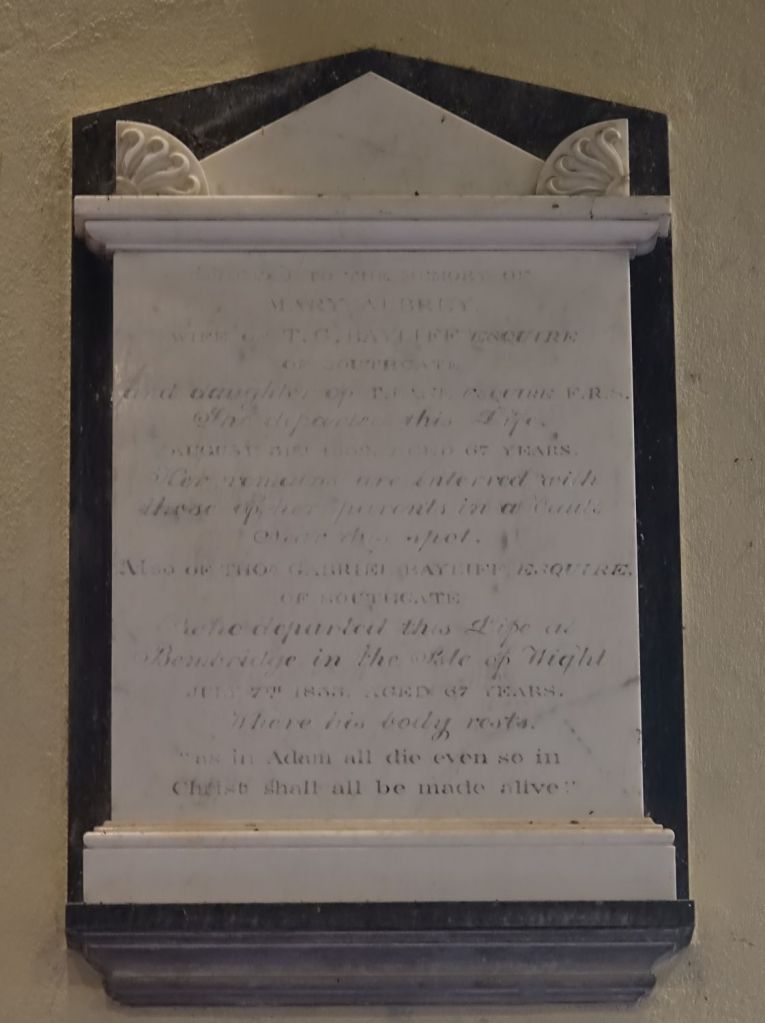 TO THE MEMORY OF
MARY AUBREY,
WIFE OF T. G. BAYLIFF ESQUIRE
OF SOUTHGATE
And daughter of ESQUIRE F.R.S.
She departed this Life,
AUGUST AGED 67 YEARS.
Her remains are interred with
those of her parents in a Vault
Near this spot.
ALSO OF THOS GABRIEL BAYLIFF, ESQUIRE.
OF SOUTHGATE
who departed this Life at
Bembridge in the Isle of Wight
JULY 7TH 1853, AGED 67 YEARS.
Where his body rests.
"as in Adam all die even so in
Christ shall all be made alive"